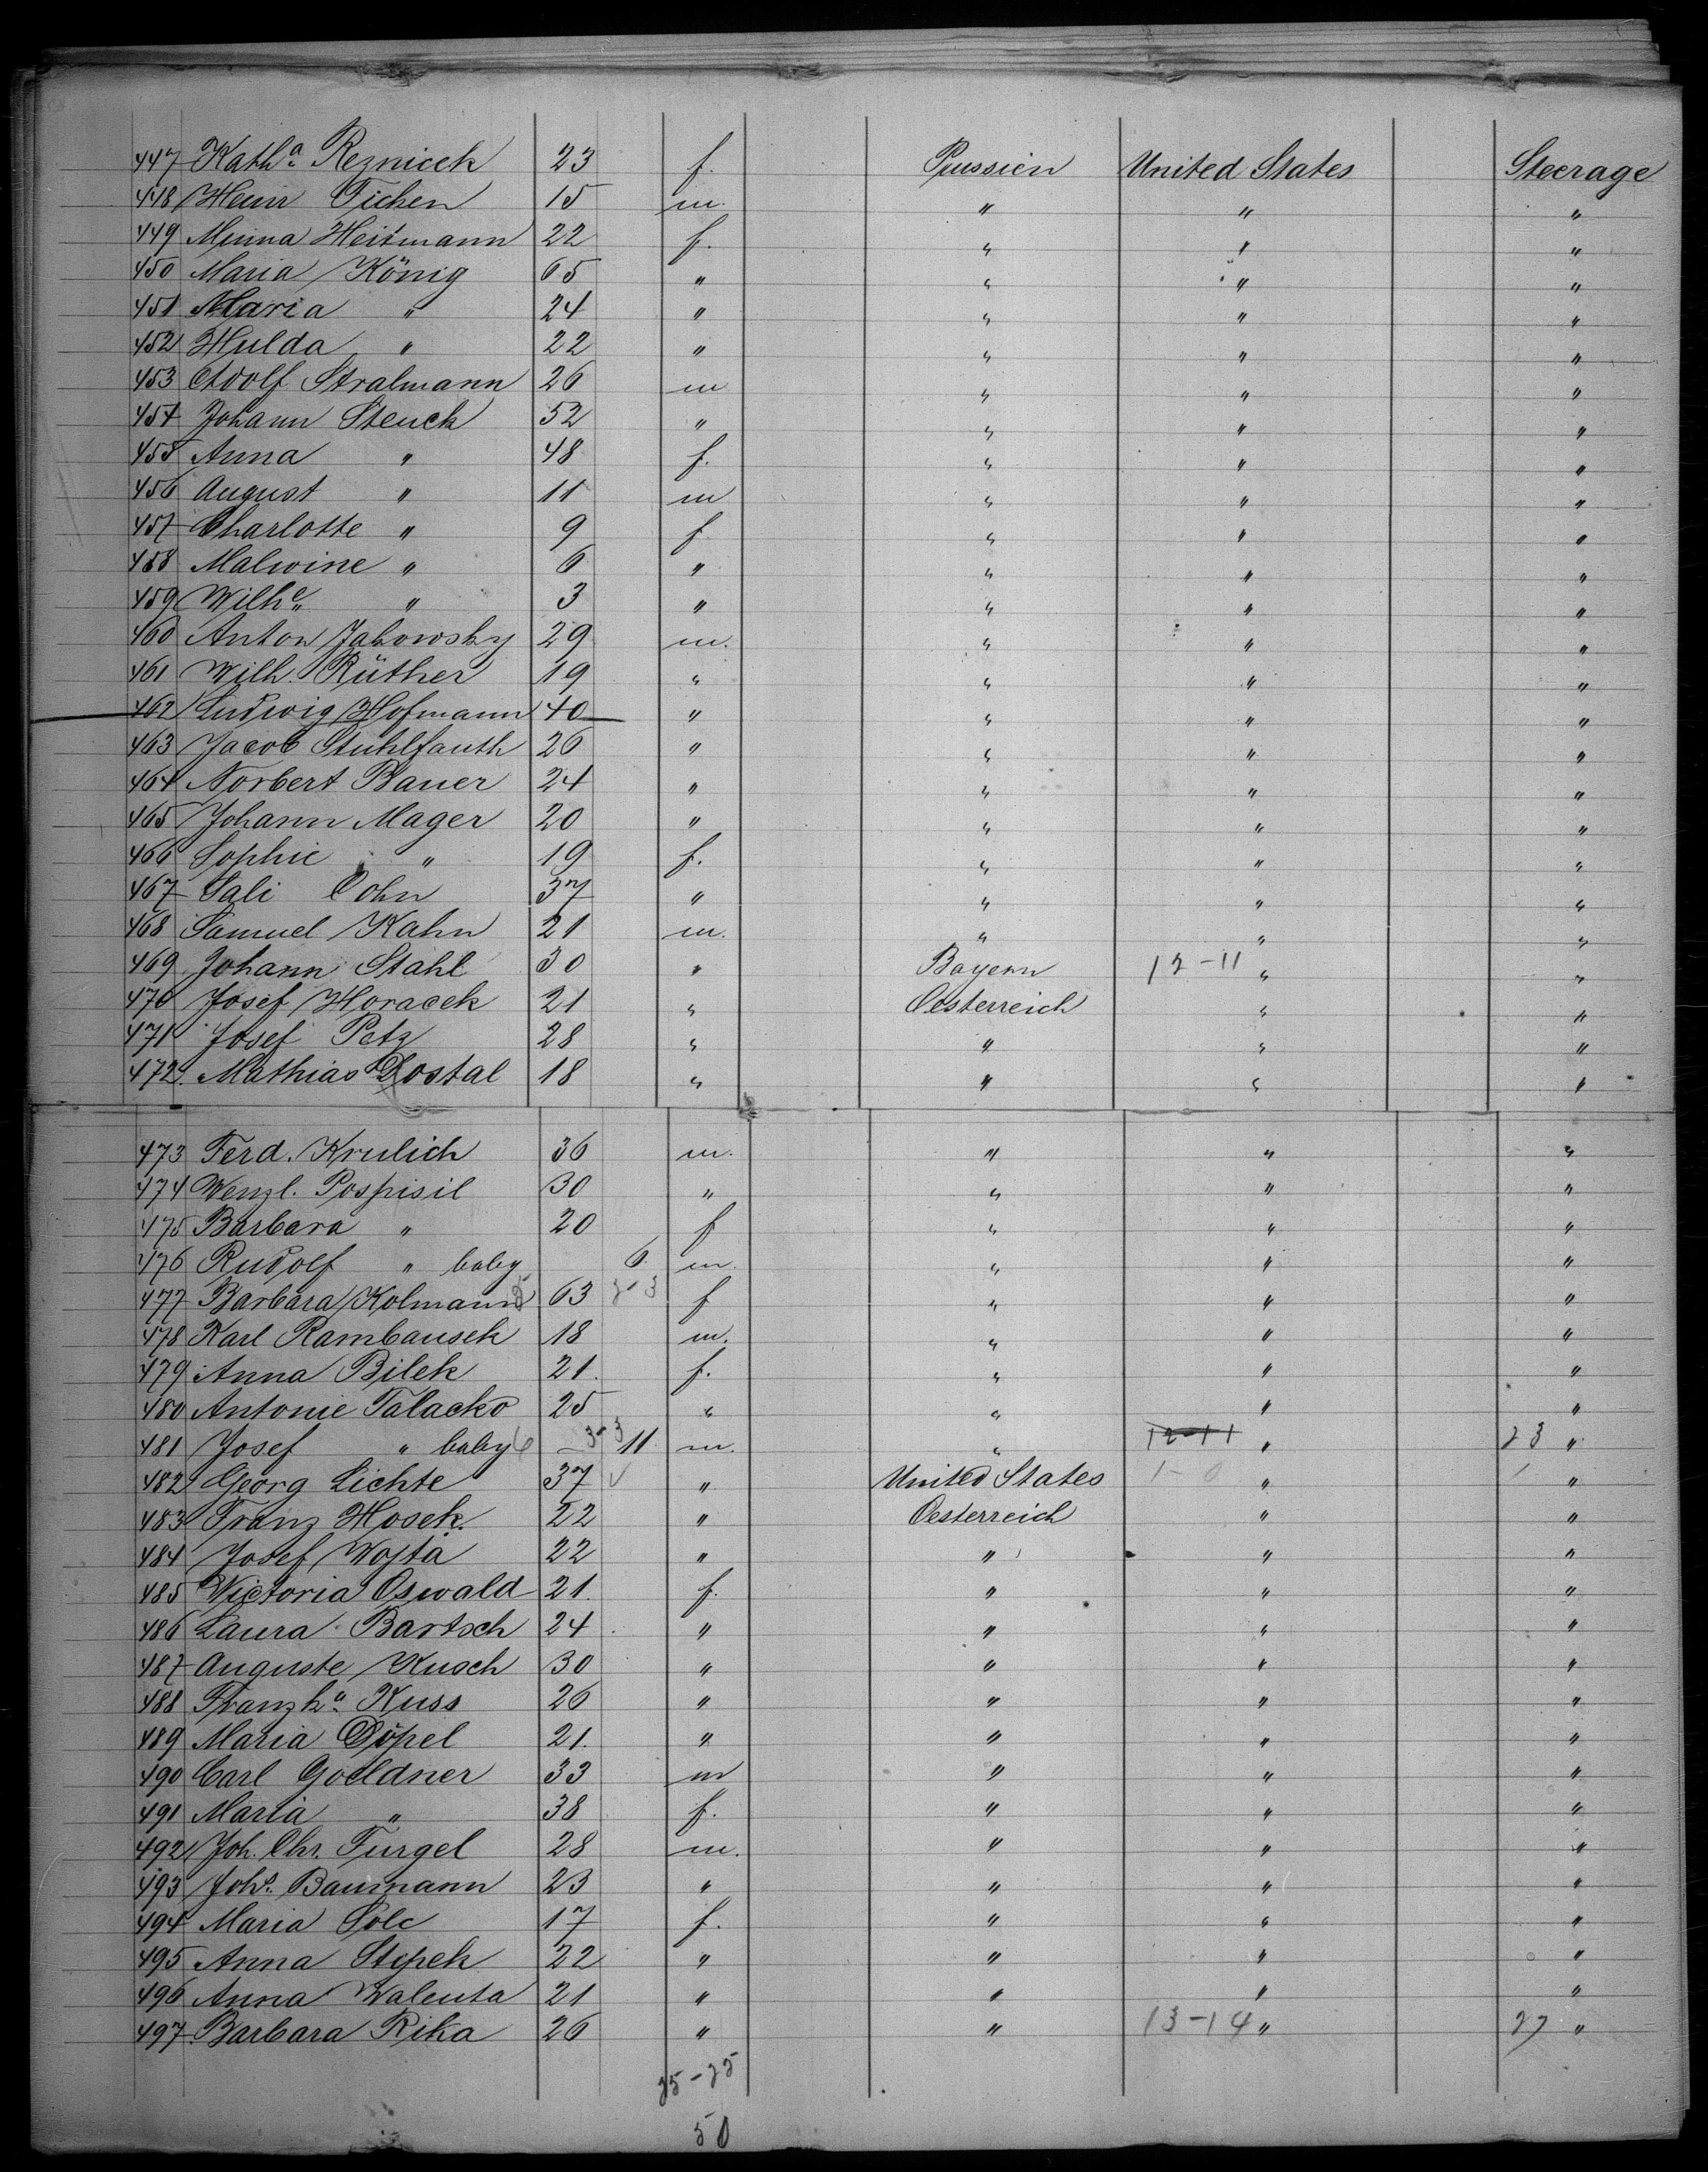 447 Kathª Reznicek 23 f. Prussien United States Steerage
448 Heinr Tichen 15 m. " " "
449 Minna Heitmann 22 f. " " "
450 Maria König 65 " " " "
451 Maria " 24 " " " "
452 Hulda " 22 " " " "
453 Adolf Stralmann 26 m " " "
454 Johann Stenck 52 " " " "
455 Anna " 48 f. " " "
456 August " 11 m " " "
457 Charlotte " 9 f " " "
458 Malwine " 6 " " " "
459 Wilhe " 3 " " " "
460 Anton Jakowsky 29 m. " " "
461 Wilh. Rüther 19 " " " "
462 Ludwig Hofmann 40 " " " "
463 Jacob Stuhlfauth 26 " " " "
464 Norbert Bauer 24 " " " "
465 Johann Mager 20 " " " "
466 Sophie " 19 f. " " "
467 Sali Cohn 37 " " " "
468 Samuel Kahn 21 m. " " "
469 Johann Stahl 30 " Bayern 12-11 " "
470 Josef Horacek 21 " Oesterreich " "
471 Josef Petz 28 " " " "
472. Mathias Dostal 18 " " " "
473 Ferd. Krulich 36 m. " " "
474 Wenzl. Pospisil 30 " " " "
475 Barbara " 20 f " " "
476 Rudolf " baby 6 m. " " "
477 Barbara Kolmann 63 3-3 f " " "
478 Karl Rambausek 18 m. " " "
479 Anna Bilek 21. f. " " "
480 Antonie Talacko 25 " " " "
481 Josef " baby 3-3 11 m. " 12-11 " 23 "
482 Georg Lichte 37 " United States 1-0 " 1 "
483 Franz Hosek. 22 " Oesterreich " "
484 Josef Wojta 22 " " " "
485 Victoria Oswald 21. f. " " "
486 Laura Bartsch 24 " " " "
487 Auguste Kusch 30 " " " "
488 Franzkª Kuss 26 " " " "
489 Maria Döpel 21. " " " "
490 Carl Goeldner 33 m " " "
491 Maria " 38 f. " " "
492 Joh. Chr. Furgel 28 m. " " "
493 Johs. Baumann 23 " " " "
494 Maria Solc 17 f. " " "
495 Anna Stepek 22 " " " "
496 Anna Walenta 21 " " " "
497 Barbara Rika 26 " " 13-14 " 27 "
25-25
50